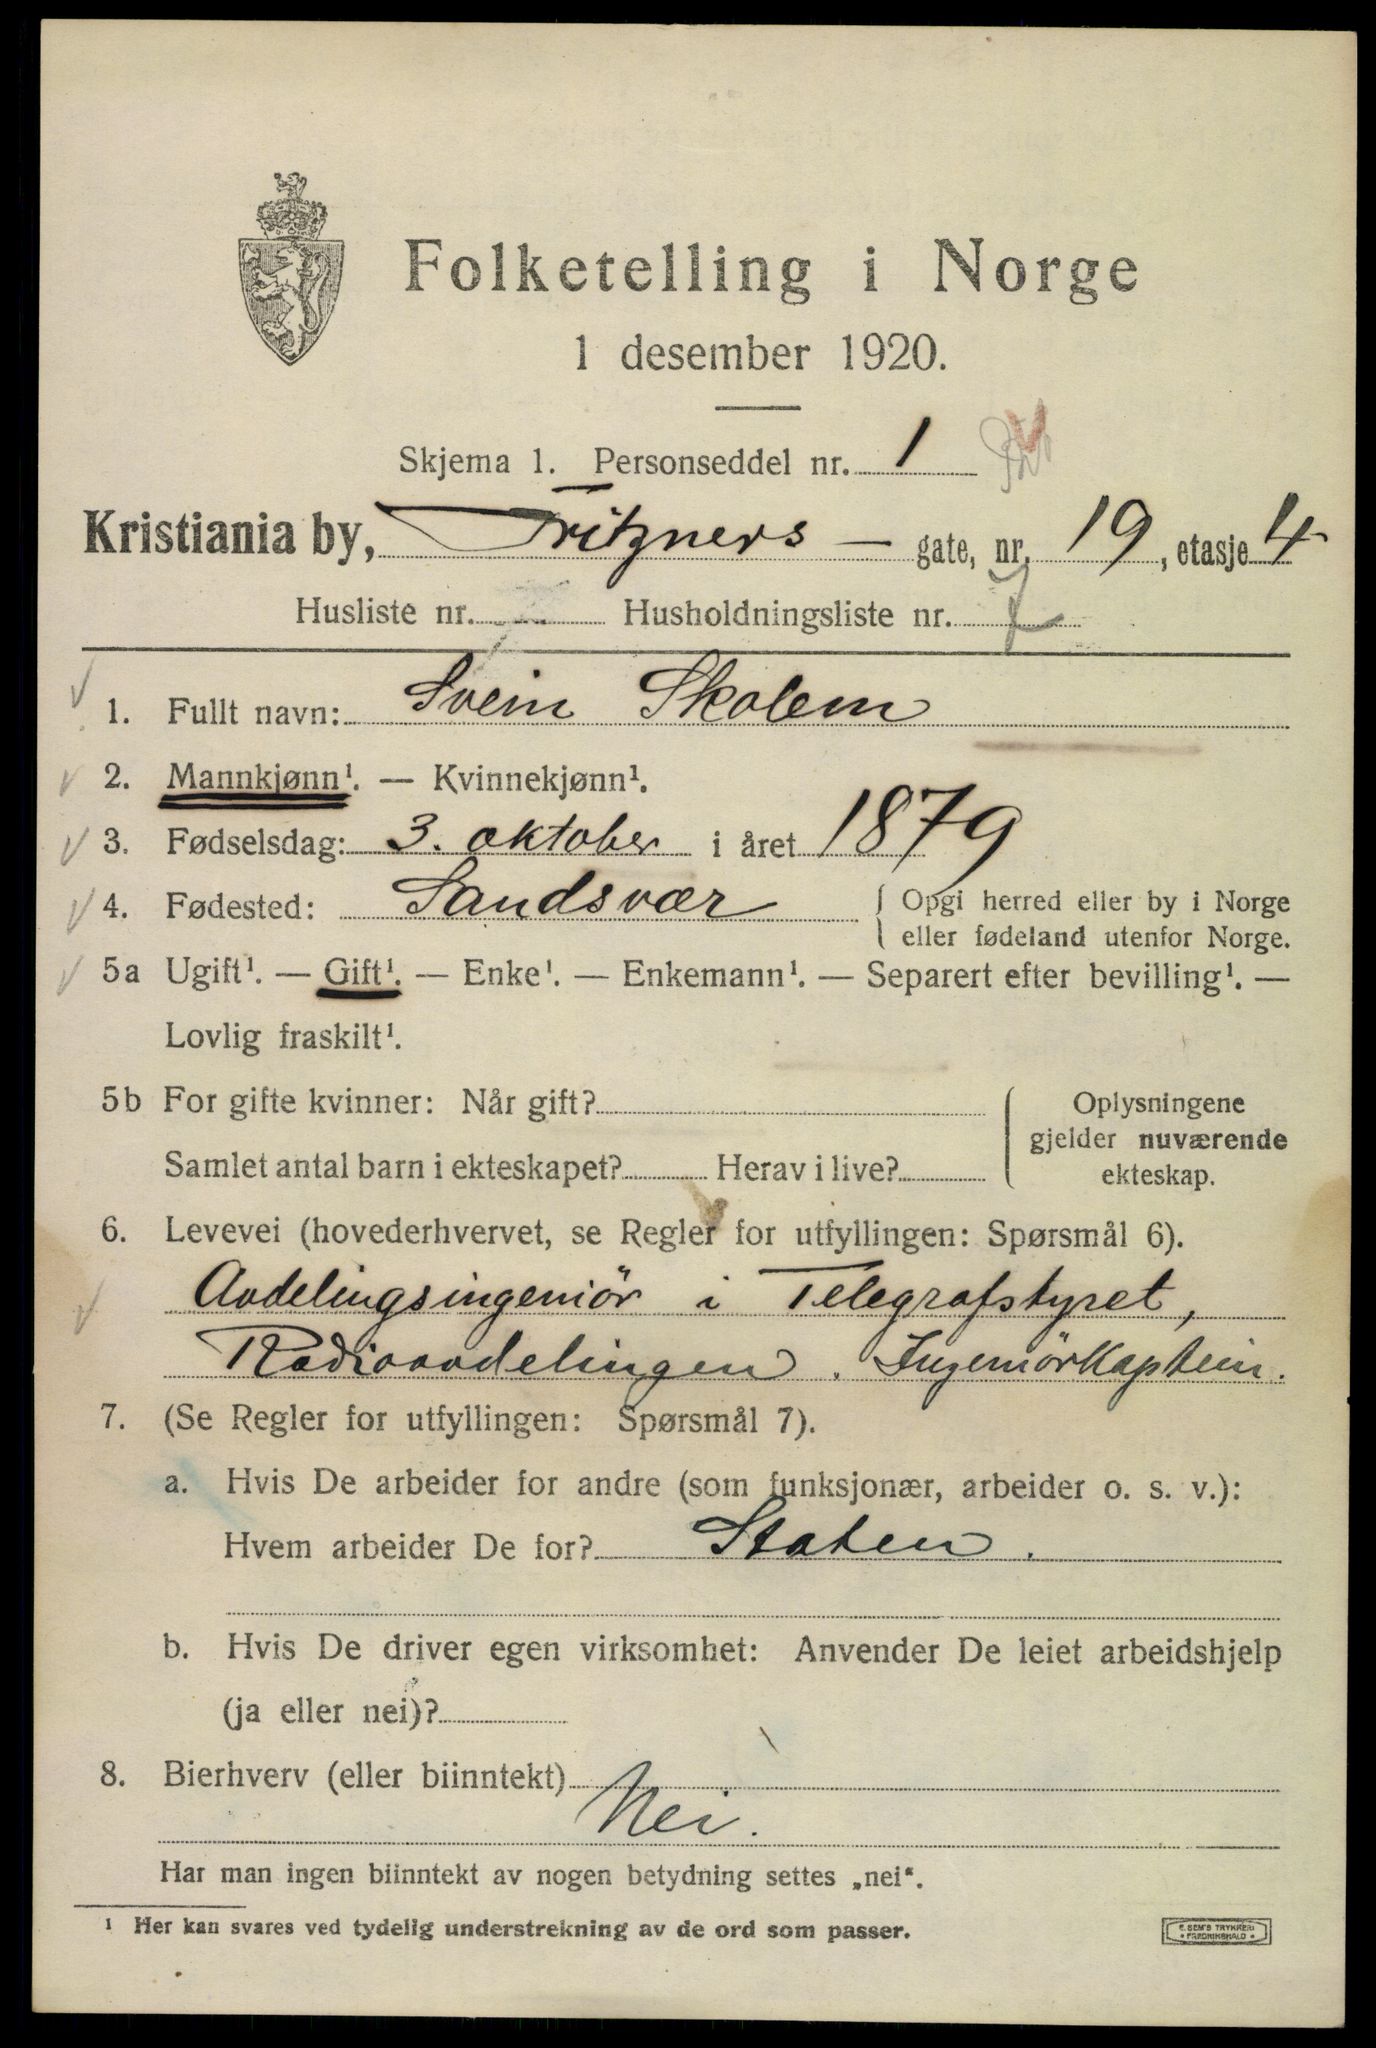 Folketelling i Norge
1 desember 1920.
Skjema 1. Personseddel nr. 1
Kristiania by, Fritzners — gate, nr. 19, etasje 4
Husliste nr. Husholdningsliste nr. 7
1. Fullt navn: Svein Skolem
2. Mannkjønn¹. — Kvinnekjønn¹.
3. Fødselsdag: 3. oktober i året 1879
4. Fødested: Sandsvær { Opgi herred eller by i Norge
eller fødeland utenfor Norge.
5a Ugift¹. — Gift¹. — Enke¹. — Enkemann¹. — Separert efter bevilling¹. —
Lovlig fraskilt¹.
5b For gifte kvinner: Når gift?
Samlet antal barn i ekteskapet? Herav i live?
Oplysningene
gjelder nuværende
ekteskap.
6. Levevei (hovederhvervet, se Regler for utfyllingen: Spørsmål 6).
Avdelingsingeniør i Telegrafstyret,
Radioavdelingen. Ingeniørkaptein.
7. (Se Regler for utfyllingen: Spørsmål 7).
a. Hvis De arbeider for andre (som funksjonær, arbeider o. s. v.):
Hvem arbeider De for? Staten.
b. Hvis De driver egen virksomhet: Anvender De leiet arbeidshjelp
(ja eller nei)?
8. Bierhverv (eller biinntekt)
Nei.
Har man ingen biinntekt av nogen betydning settes „nei“.
¹ Her kan svares ved tydelig understrekning av de ord som passer.
E. SEM'S TRYKKERI
• FREDRIKSHALD •